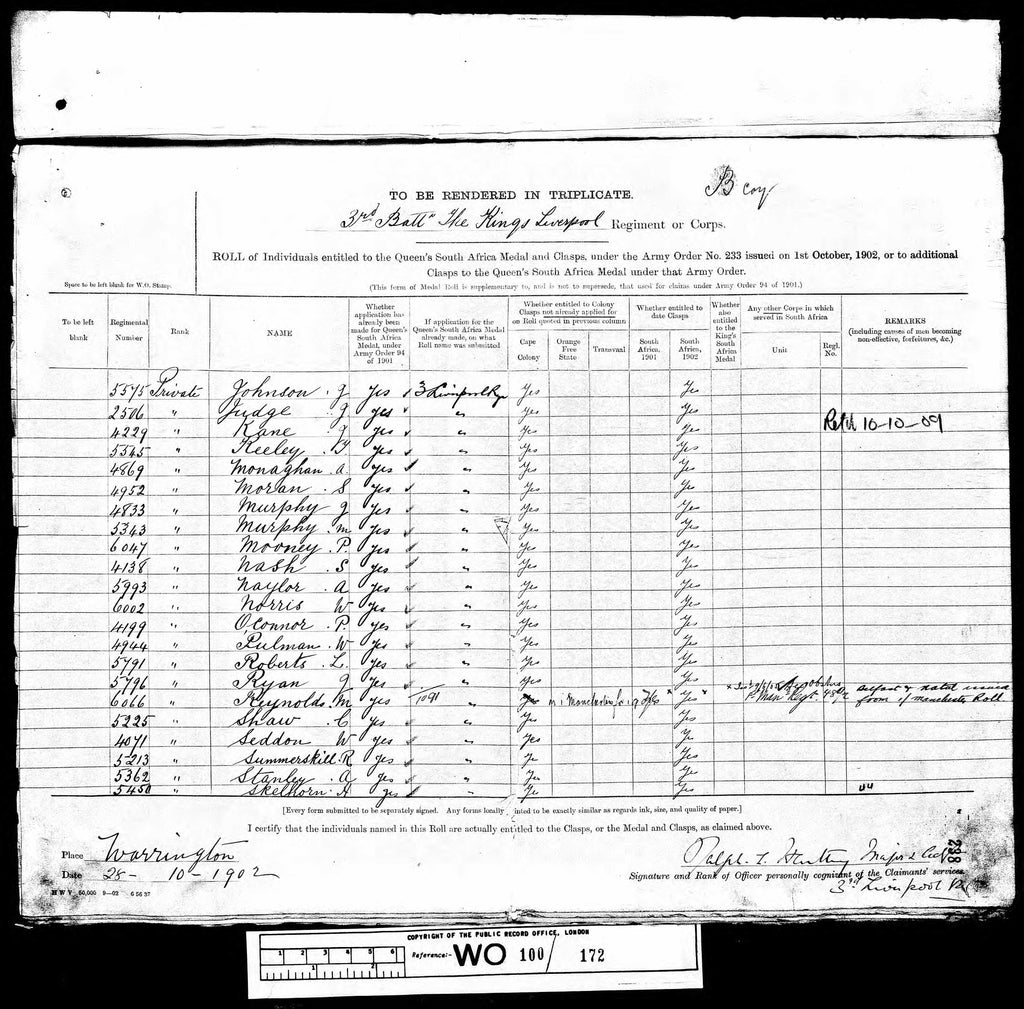 B coy
TO BE RENDERED IN TRIPLICATE.
3rd Battn The Kings Liverpool Regiment or Corps.
ROLL of Individuals entitled to the Queen's South Africa Medal and Clasps, under the Army Order No. 233 issued on 1st October, 1902, or to additional
Clasps to the Queen's South Africa Medal under that Army Order.
Space to be left blank for W.O. Stamp.
(This form of Medal Roll is supplementary to, and is not to supersede, that used for claims under Army Order 94 of 1901.)
To be left blank
Regimental Number
Rank
NAME
Whether application has already been made for Queen's South Africa Medal, under Army Order 94 of 1901
If application for the Queen's South Africa Medal already made, on what Roll name was submitted
Whether entitled to Colony Clasps not already applied for on Roll quoted in previous column
Cape Colony
Orange Free State
Transvaal
Whether entitled to date Clasps
South Africa, 1901
South Africa, 1902
Whether also entitled to the King's South Africa Medal
Any other Corps in which served in South Africa
Unit
Regl. No.
REMARKS
(including causes of men becoming non-effective, forfeitures, &c.)
5575 Private Johnson . J Yes 3 Liverpool Yes Yes
2506 " Judge . J Yes " Yes Yes
4229 " Kane . J Yes " Yes Yes 10-10-09
5545 " Keeley . Yes " Yes Yes
4869 " Monaghan . A Yes " Yes Yes
4952 " Moran . S Yes " Yes Yes
4833 " Murphy J Yes " Yes Yes
5343 " Murphy . M Yes " Yes Yes
6047 " Mooney . P. Yes " Yes Yes
4138 " Nash . S Yes " Yes Yes
5993 " Naylor . A Yes " Yes Yes
6002 " Norris W Yes " Yes Yes
4199 " O'Connor . P. Yes " Yes Yes
4944 " Pulman . W Yes " Yes Yes
5791 " Roberts . L. Yes " Yes Yes
5796 " Ryan J Yes " Yes Yes
6066 " Reynolds . M Yes Yes Yes Belfast & Natal issued from 1/ Manchester Roll
5225 " Shaw . C Yes " Yes Yes
4071 " Seddon . W Yes " Yes Yes
5213 " Summerskill . R Yes " Yes Yes
5362 " Stanley . A Yes " Yes Yes
5450 " Skelhorn . A Yes " Yes Yes
[Every form submitted to be separately signed. Any forms locally printed to be exactly similar as regards ink, size, and quality of paper.]
I certify that the individuals named in this Roll are actually entitled to the Clasps, or the Medal and Clasps, as claimed above.
Place Warrington
Date 28- 10-1902
Ralph Major &
Signature and Rank of Officer personally cognizant of the Claimants' services.
3rd Liverpool
H W V 50,000 9—02 6 56 37
238
COPYRIGHT OF THE PUBLIC RECORD OFFICE, LONDON
1 2 3 4 5 6
Reference:- WO 100/ 172
1 2